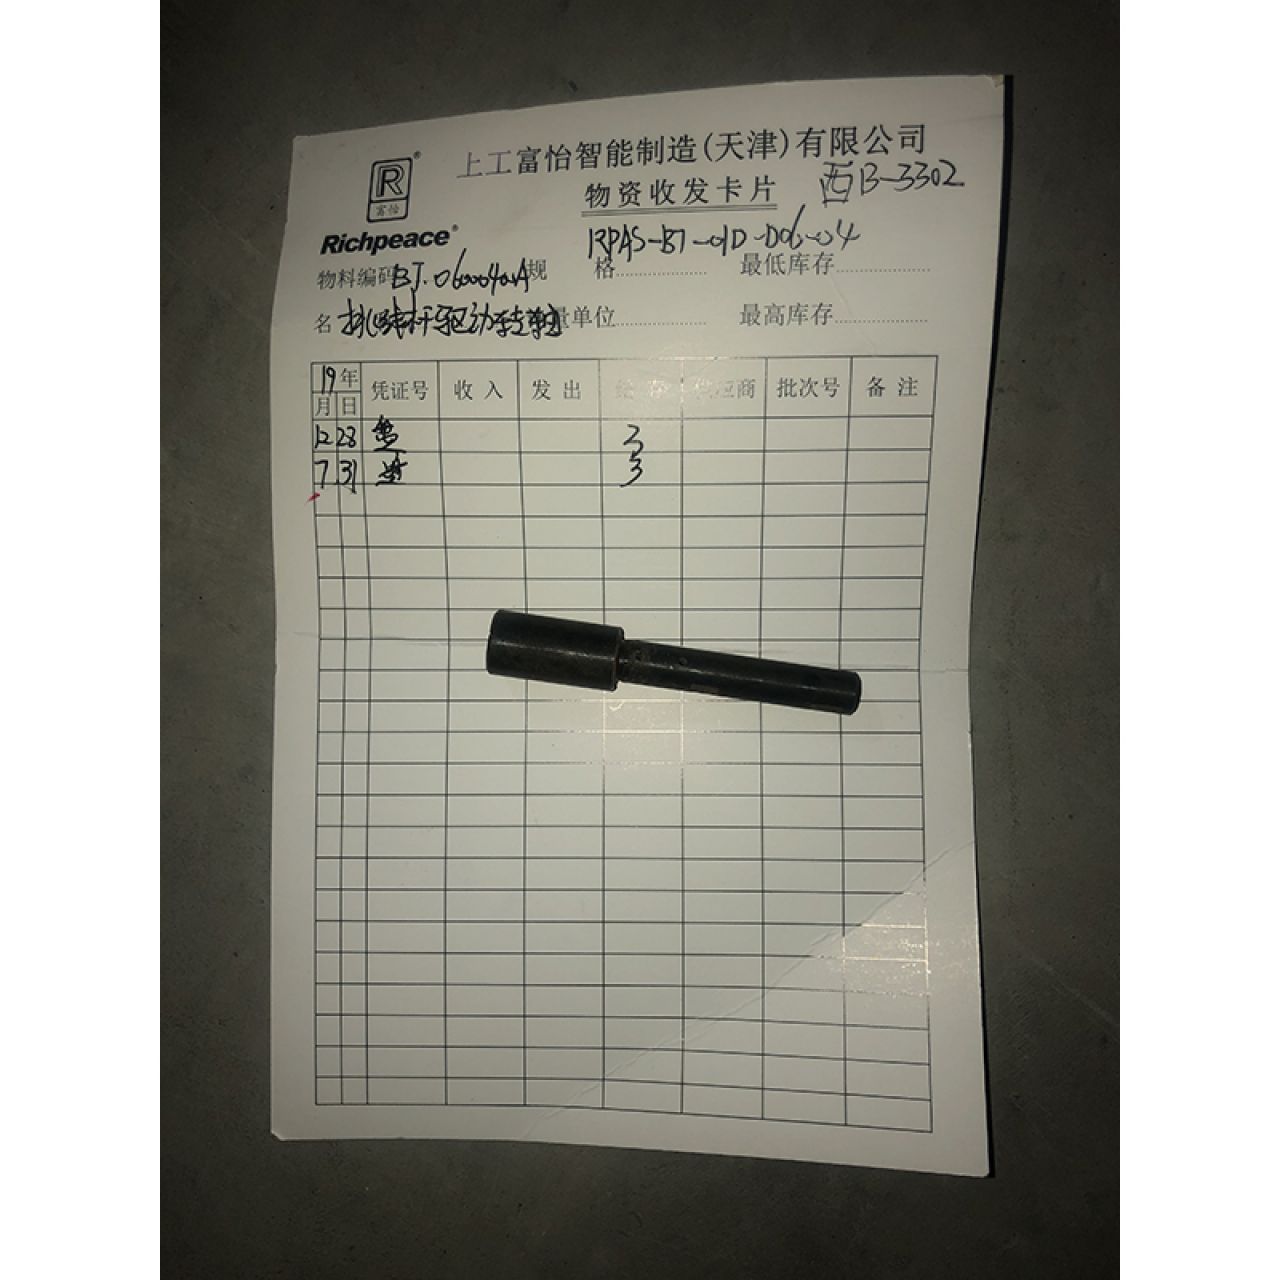 上工富怡智能制造(天津)有限公司
R®
富怡
物资收发卡片 西B-3302
Richpeace®
RPAS-B7-01D-D06-04
物料编码 BJ.0600040A 规 格 最低库存
名 挑线杆驱动转轴 量单位 最高库存
19年 凭证号 收入 发出 应商 批次号 备注
月 日
12 28 3
7 31 3